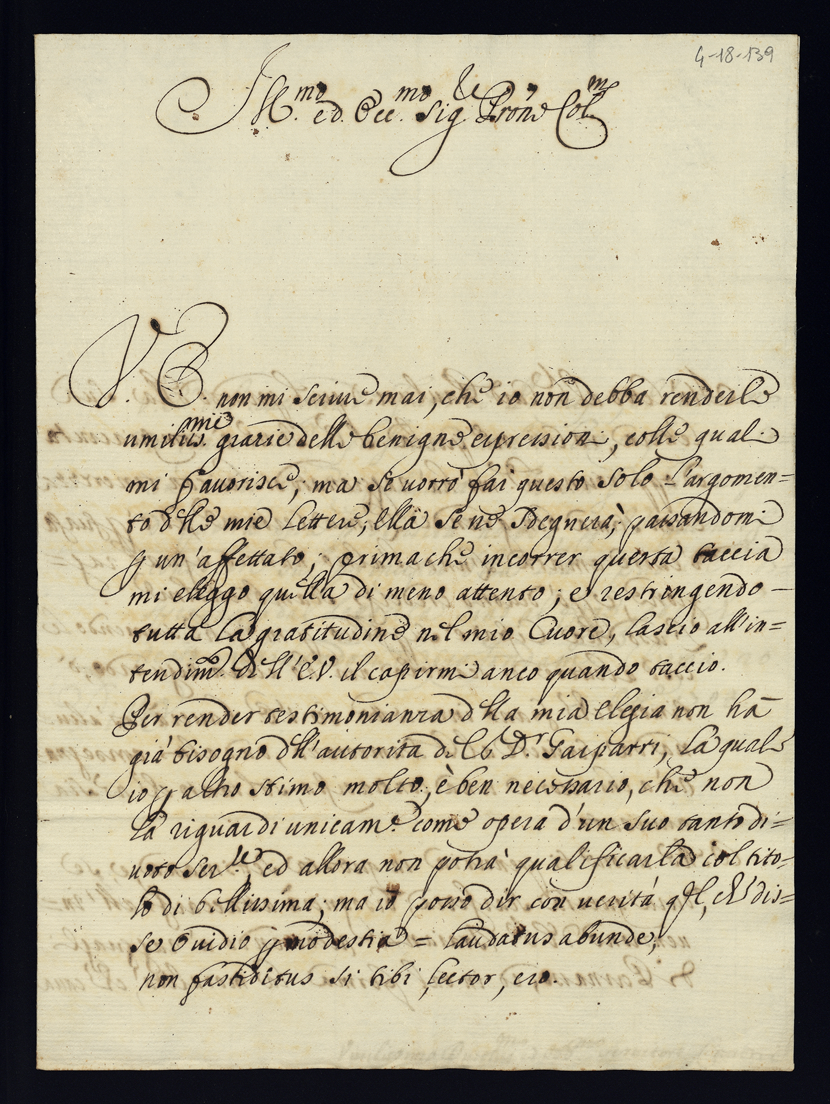 4-18-139
Ill.mo ed Ecc.mo Sig.re Pron.e Col.mo
V. E. non mi scrive mai, che io non debba renderle
umiliss.me grazie delle benigne espressioni, colle quali
mi favorisce; ma se vorrò far questo solo l'argomen=
to d'lle mie lettere, Ella se ne sdegnerà, passandomi
p un'affettato; prima che incorrer questa taccia
mi eleggo quella di meno attento; e restringendo
tutta la gratitudine nel mio Cuore, lascio all'in=
tendim.o dell'E.V. il capirmi anco quando taccio.
Per render testimonianza d'lla mia Elegia non ha
già bisogno dll'autorità del Dr. Gasparri, la quale
io p altro stimo molto; è ben necessario, che non
la riguardi unicam.e come opera d'un suo tanto di=
voto ser.re, ed allora non potrà qualificarla col tito=
lo di bellissima; ma io posso dir con verità ql, che dis=
se Ovidio p modestia = laudatus abunde,
non fastiditus si tibi, lector, ero.